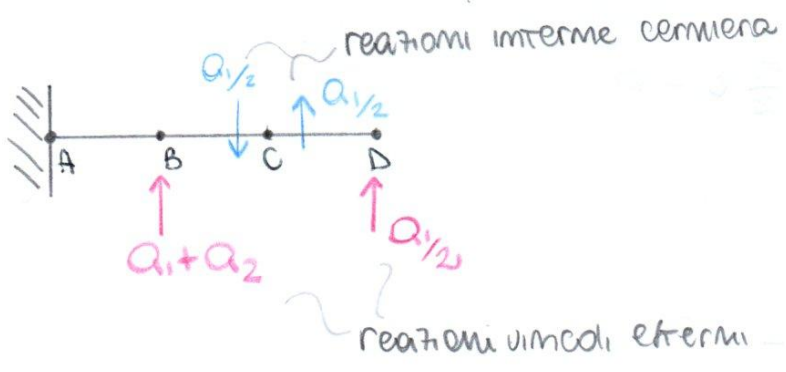 reazioni interne cerniera
Q₁/₂
Q₁/₂
A
B
C
D
Q₁+Q₂
Q₁/₂
reazioni vincoli esterni